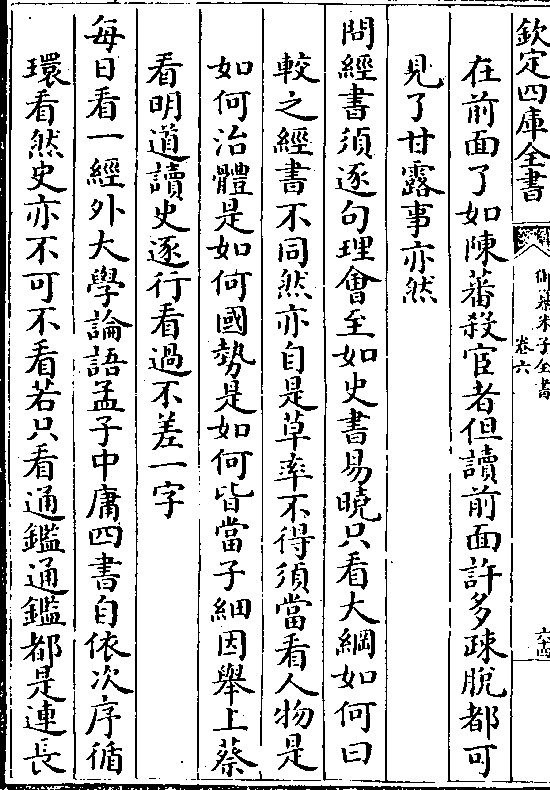 欽定四庫全書
御纂朱子全書
卷六
在前面了如陳蕃殺宦者但讀前面許多疎脫都可
見了甘露事亦然
問經書須逐句理會至如史書易曉只看大綱如何曰
較之經書不同然亦自是草率不得須當看人物是
如何治體是如何國勢是如何皆當子細因舉上蔡
看明道讀史逐行看過不差一字
每日看一經外大學論語孟子中庸四書自依次序循
環看然史亦不可不看若只看通鑑通鑑都是連長